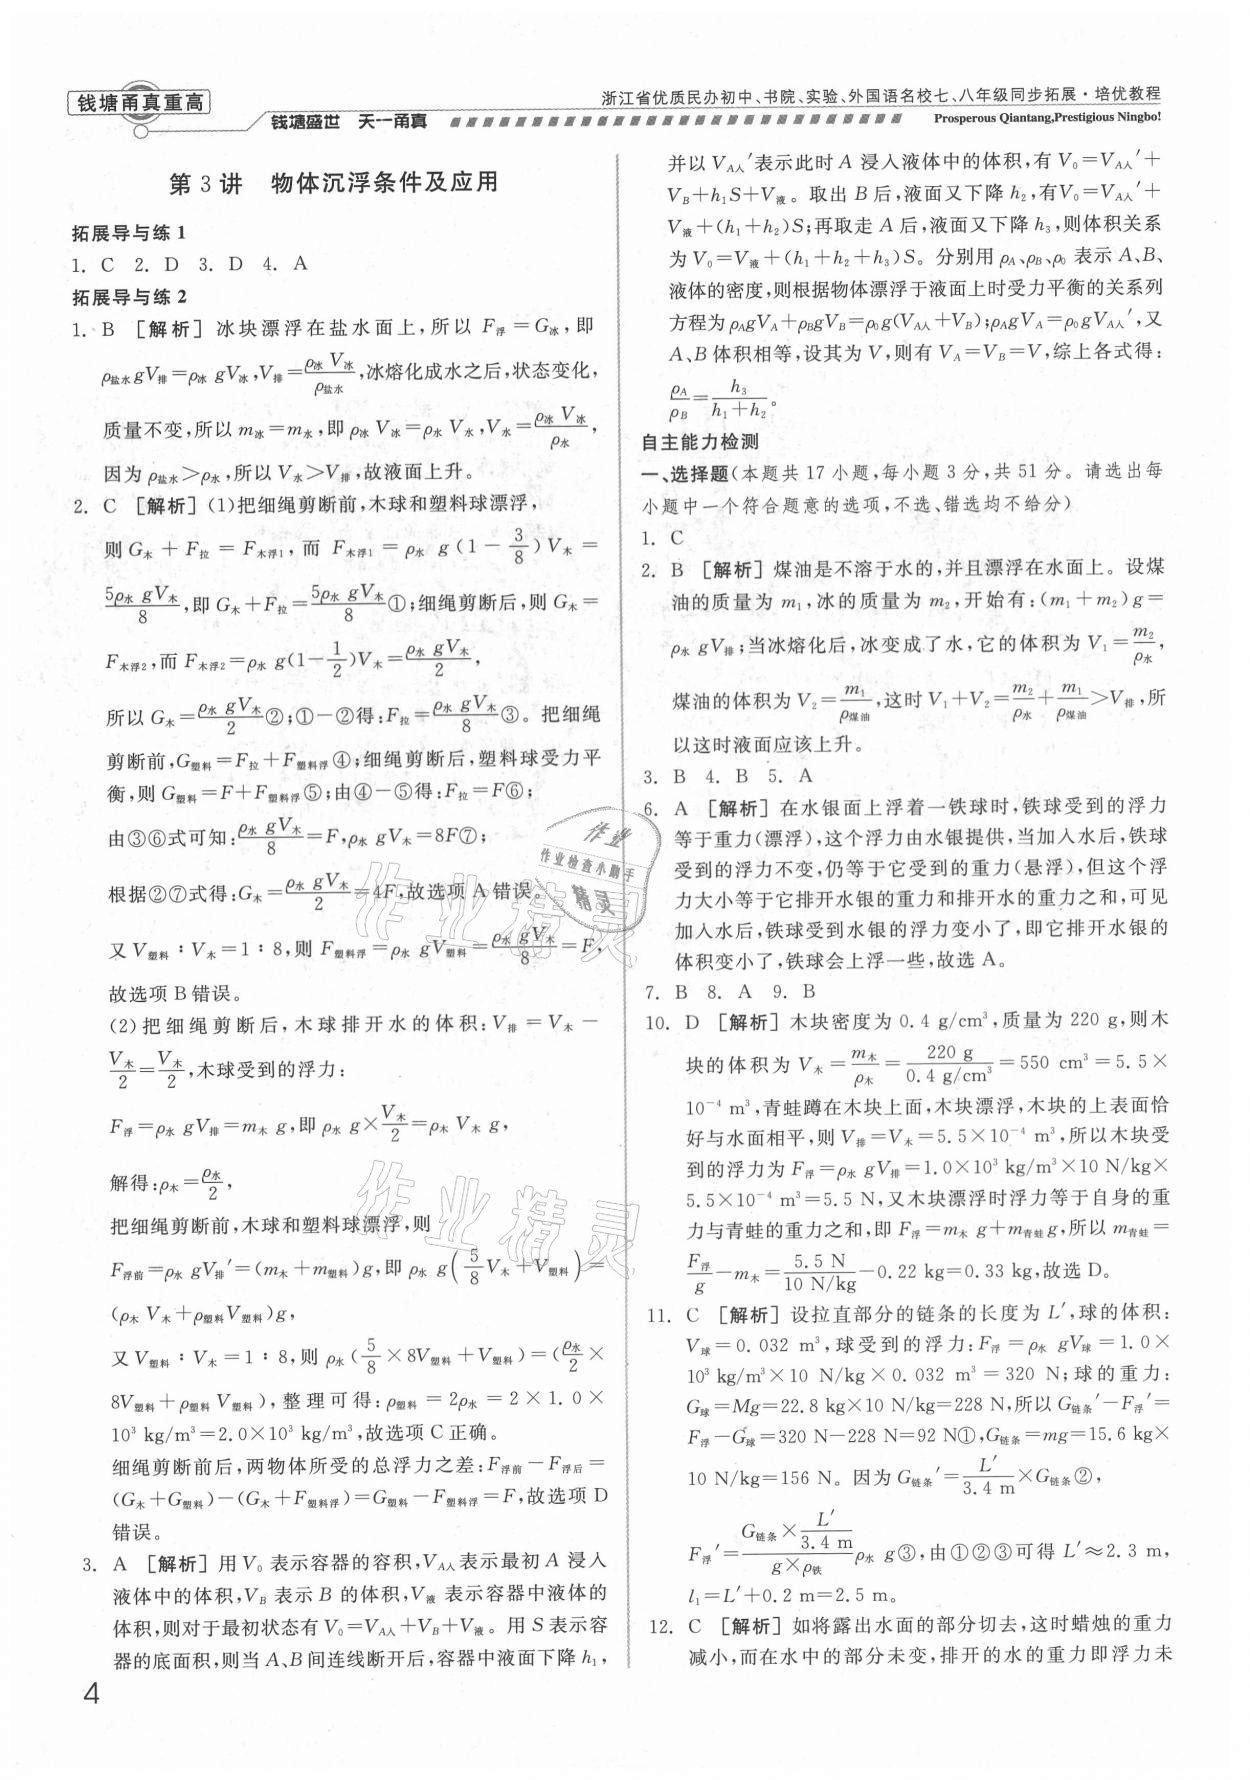 钱塘甬真重高
钱塘盛世 天一甬真
浙江省优质民办初中、书院、实验、外国语名校七、八年级同步拓展·培优教程
Prosperous Qiantang,Prestigious Ningbo!
第 3 讲 物体沉浮条件及应用
拓展导与练 1
1. C 2. D 3. D 4. A
拓展导与练 2
1. B [解析]冰块漂浮在盐水面上,所以 F浮=G冰,即
ρ盐水gV排=ρ冰 gV冰,V排=ρ冰 V冰/ρ盐水,冰熔化成水之后,状态变化,
质量不变,所以 m冰=m水,即 ρ冰 V冰=ρ水 V水,V水=ρ冰 V冰/ρ水,
因为 ρ盐水>ρ水,所以 V水>V排,故液面上升。
2. C [解析](1)把细绳剪断前,木球和塑料球漂浮,
则 G木+F拉=F木浮1,而 F木浮1=ρ水 g(1-3/8)V木=
5ρ水 gV木/8,即 G木+F拉=5ρ水 gV木/8①;细绳剪断后,则 G木=
F木浮2,而 F木浮2=ρ水 g(1-1/2)V木=ρ水 gV木/2,
所以 G木=ρ水 gV木/2②;①-②得:F拉=ρ水 gV木/8③。把细绳
剪断前,G塑料=F拉+F塑料浮④;细绳剪断后,塑料球受力平
衡,则 G塑料=F+F塑料浮⑤;由④-⑤得:F拉=F⑥;
由③⑥式可知:ρ水 gV木/8=F,ρ水 gV木=8F⑦;
根据②⑦式得:G木=ρ水 gV木/2=4F,故选项 A 错误。
又 V塑料∶V木=1∶8,则 F塑料浮=ρ水 gV塑料=ρ水 gV木/8=F,
故选项 B 错误。
(2)把细绳剪断后,木球排开水的体积:V排=V木-
V木/2=V木/2,木球受到的浮力:
F浮=ρ水 gV排=m木 g,即 ρ水 g×V木/2=ρ木 V木 g,
解得:ρ木=ρ水/2,
把细绳剪断前,木球和塑料球漂浮,则
F浮前=ρ水 gV排′=(m木+m塑料)g,即 ρ水 g(5/8V木+V塑料)=
(ρ木 V木+ρ塑料V塑料)g,
又 V塑料∶V木=1∶8,则 ρ水(5/8×8V塑料+V塑料)=(ρ水/2×
8V塑料+ρ塑料 V塑料),整理可得:ρ塑料=2ρ水=2×1.0×
10³ kg/m³=2.0×10³ kg/m³,故选项 C 正确。
细绳剪断前后,两物体所受的总浮力之差:F浮前-F浮后=
(G木+G塑料)-(G木+F塑料浮)=G塑料-F塑料浮=F,故选项 D
错误。
3. A [解析]用 V₀ 表示容器的容积,VA人表示最初 A 浸入
液体中的体积,VB 表示 B 的体积,V液 表示容器中液体的
体积,则对于最初状态有 V₀=VA人+VB+V液。用 S 表示容
器的底面积,则当 A、B 间连线断开后,容器中液面下降 h₁,
4
并以 VA人′表示此时 A 浸入液体中的体积,有 V₀=VA人′+
VB+h₁S+V液。取出 B 后,液面又下降 h₂,有V₀=VA人′+
V液+(h₁+h₂)S;再取走 A 后,液面又下降 h₃,则体积关系
为 V₀=V液+(h₁+h₂+h₃)S。分别用 ρA、ρB、ρ₀ 表示 A、B、
液体的密度,则根据物体漂浮于液面上时受力平衡的关系列
方程为 ρAgVA+ρBgVB=ρ₀g(VA人+VB);ρAgVA=ρ₀gVA人′,又
A、B 体积相等,设其为 V,则有 VA=VB=V,综上各式得:
ρA/ρB=h₃/(h₁+h₂)。
自主能力检测
一、选择题(本题共 17 小题,每小题 3 分,共 51 分。请选出每
小题中一个符合题意的选项,不选、错选均不给分)
1. C
2. B [解析]煤油是不溶于水的,并且漂浮在水面上。设煤
油的质量为 m₁,冰的质量为 m₂,开始有:(m₁+m₂)g=
ρ水 gV排;当冰熔化后,冰变成了水,它的体积为 V₁=m₂/ρ水,
煤油的体积为 V₂=m₁/ρ煤油,这时 V₁+V₂=m₂/ρ水+m₁/ρ煤油>V排,所
以这时液面应该上升。
3. B 4. B 5. A
6. A [解析]在水银面上浮着一铁球时,铁球受到的浮力
等于重力(漂浮),这个浮力由水银提供,当加入水后,铁球
受到的浮力不变,仍等于它受到的重力(悬浮),但这个浮
力大小等于它排开水银的重力和排开水的重力之和,可见
加入水后,铁球受到水银的浮力变小了,即它排开水银的
体积变小了,铁球会上浮一些,故选 A。
7. B 8. A 9. B
10. D [解析]木块密度为 0.4 g/cm³,质量为 220 g,则木
块的体积为 V木=m木/ρ木=220 g/0.4 g/cm³=550 cm³=5.5×
10⁻⁴ m³,青蛙蹲在木块上面,木块漂浮,木块的上表面恰
好与水面相平,则 V排=V木=5.5×10⁻⁴ m³,所以木块受
到的浮力为 F浮=ρ水 gV排=1.0×10³ kg/m³×10 N/kg×
5.5×10⁻⁴ m³=5.5 N,又木块漂浮时浮力等于自身的重
力与青蛙的重力之和,即 F浮=m木 g+m青蛙g,所以 m青蛙=
F浮/g-m木=5.5 N/10 N/kg-0.22 kg=0.33 kg,故选 D。
11. C [解析]设拉直部分的链条的长度为 L′,球的体积:
V球=0.032 m³,球受到的浮力:F浮=ρ水 gV球=1.0×
10³ kg/m³×10 N/kg×0.032 m³=320 N;球的重力:
G球=Mg=22.8 kg×10 N/kg=228 N,所以 G链条′-F浮′=
F浮-G球=320 N-228 N=92 N①,G链条=mg=15.6 kg×
10 N/kg=156 N。因为 G链条′=L′/3.4 m×G链条②,
F浮′=(G链条×L′/3.4 m)/(g×ρ铁)ρ水 g③,由①②③可得 L′≈2.3 m,
l₁=L′+0.2 m=2.5 m。
12. C [解析]如将露出水面的部分切去,这时蜡烛的重力
减小,而在水中的部分未变,排开的水的重力即浮力未
作业
作业检查小助手
精灵
作业精灵
作业精灵